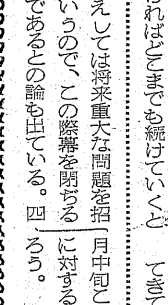 ければどこまでも続けていくと
えしては将来重大な問題を招
いうので、この際幕を閉ぢる
であるとの論も出ている。四
てき
月中旬と
に対する
ろう。